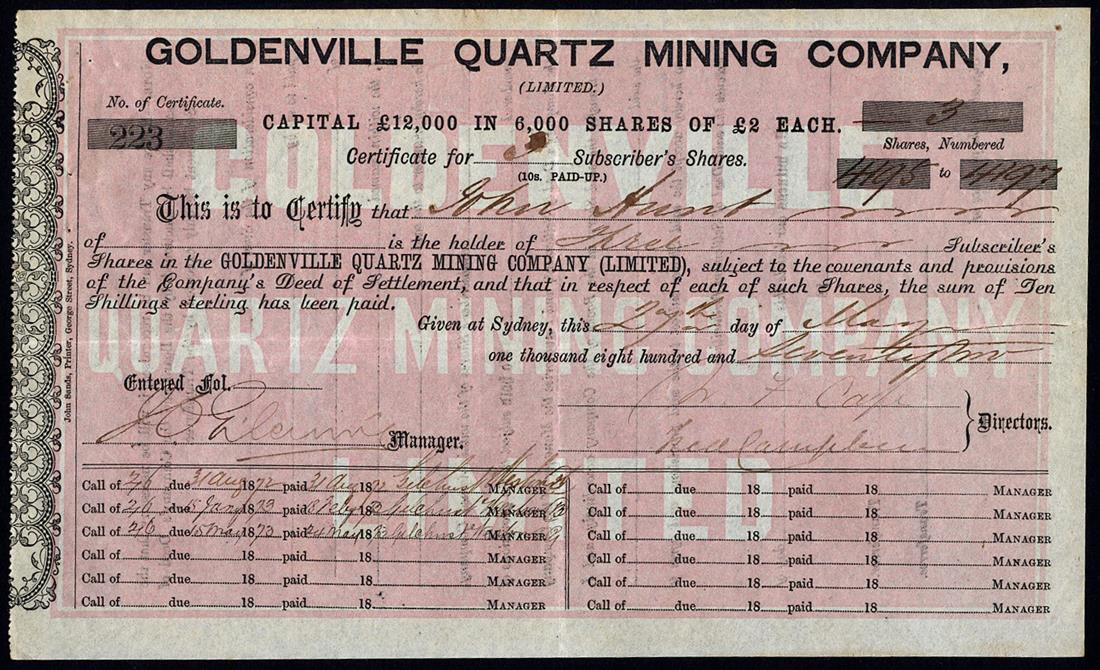 GOLDENVILLE QUARTZ MINING COMPANY,
(LIMITED.)
No. of Certificate.
223
CAPITAL £12,000 IN 6,000 SHARES OF £2 EACH.
3
Shares, Numbered
4195 to 4197
Certificate for 3 Subscriber's Shares.
(10s. PAID-UP.)
This is to Certify that John Hunt
of is the holder of Three Subscriber's
Shares in the GOLDENVILLE QUARTZ MINING COMPANY (LIMITED), subject to the covenants and provisions
of the Company's Deed of Settlement, and that in respect of each of such Shares, the sum of Ten
Shillings sterling has been paid.
Given at Sydney, this day of May
one thousand eight hundred and
Entered Fol.
Manager.
Directors.
John Sands, Printer, George Street, Sydney.
GOLDENVILLE
QUARTZ MINING COMPANY
LIMITED
Call of 2/6 due 31 Aug 1872 paid 31 Aug 187 MANAGER
Call of 2/6 due Jany 1873 paid Feby 187 Gilchrist MANAGER
Call of 2/6 due 15 May 1873 paid May 187 Gilchrist MANAGER
Call of due 18 paid 18 MANAGER
Call of due 18 paid 18 MANAGER
Call of due 18 paid 18 MANAGER
Call of due 18 paid 18 MANAGER
Call of due 18 paid 18 MANAGER
Call of due 18 paid 18 MANAGER
Call of due 18 paid 18 MANAGER
Call of due 18 paid 18 MANAGER
Call of due 18 paid 18 MANAGER